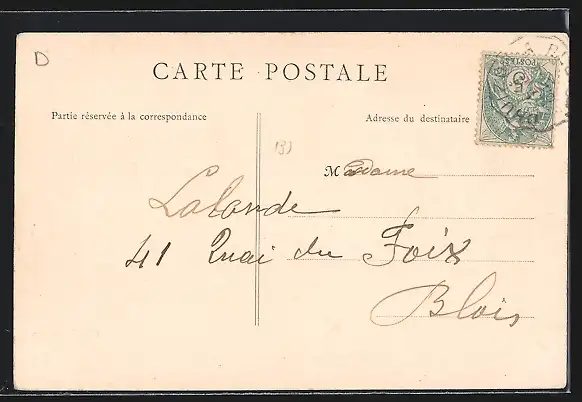 D
CARTE POSTALE
Partie réservée à la correspondance
Adresse du destinataire
POSTES
5
(3)
Madame
Lalande
41 Quai du Foix
Blois